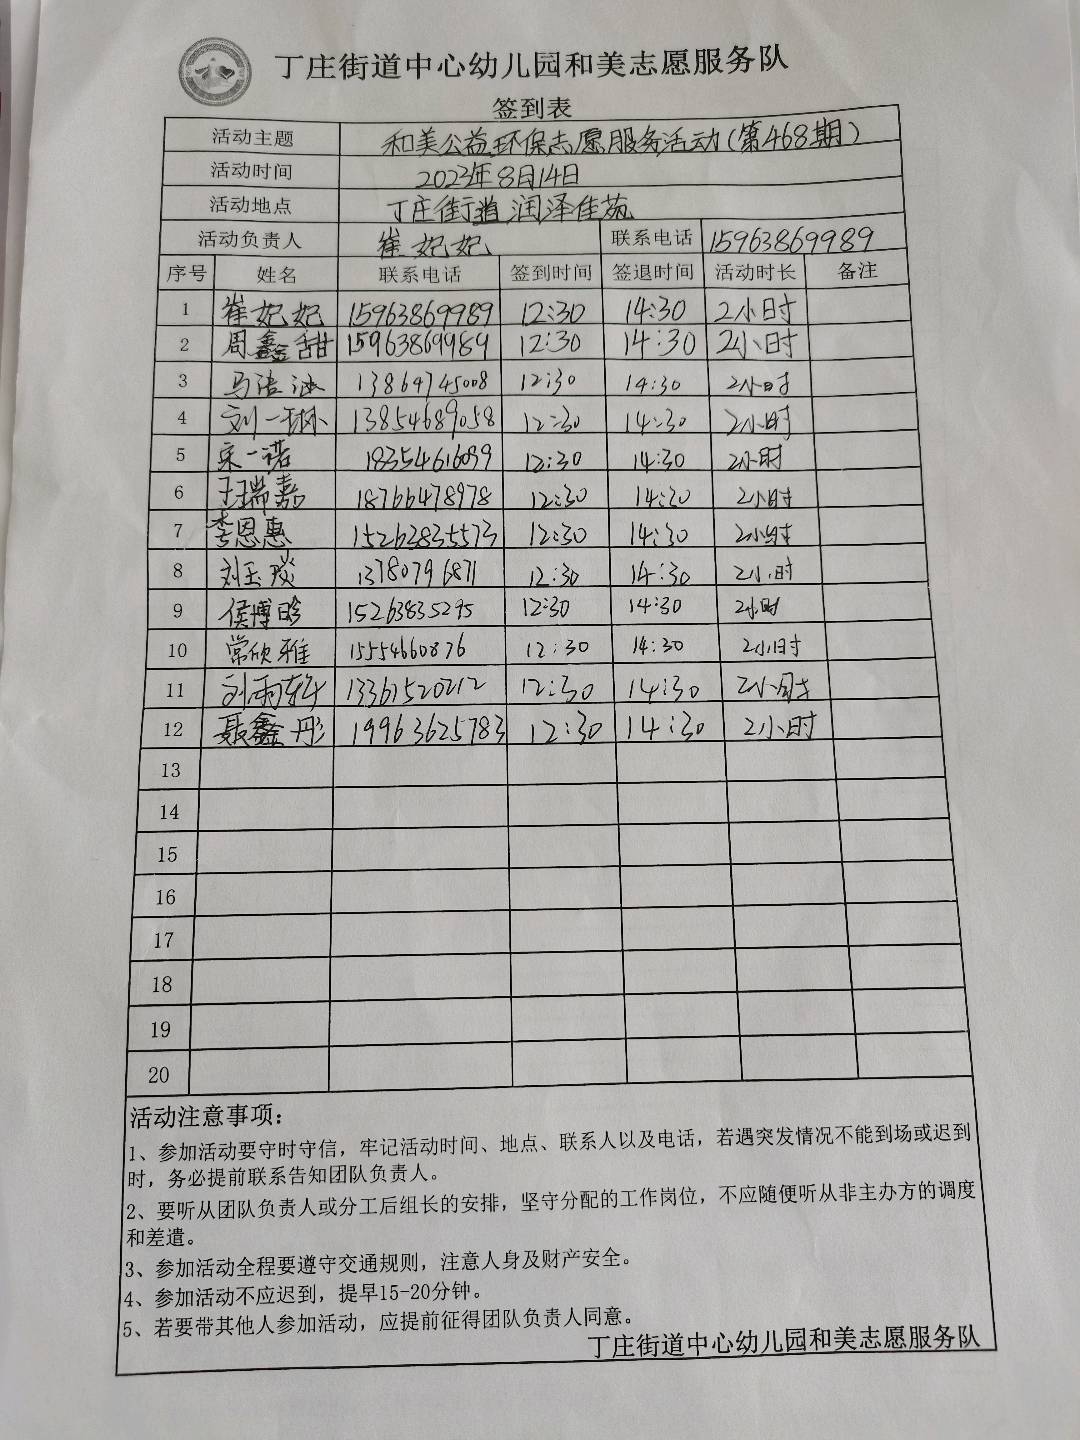 丁庄街道中心幼儿园和美志愿服务队
签到表
活动主题 和美公益环保志愿服务活动(第468期)
活动时间 2023年8月14日
活动地点 丁庄街道润泽佳苑
活动负责人 崔妃妃 联系电话 15963869989
序号 姓名 联系电话 签到时间 签退时间 活动时长 备注
1 崔妃妃 15963869989 12:30 14:30 2小时
2 周鑫甜 15963869989 12:30 14:30 2小时
3 马浩涵 13864745008 12:30 14:30 2小时
4 刘一琳 13854689058 12:30 14:30 2小时
5 宋一诺 18354616099 12:30 14:30 2小时
6 王瑞嘉 18766478978 12:30 14:30 2小时
7 李恩惠 15263835573 12:30 14:30 2小时
8 刘玉琰 13780796871 12:30 14:30 2小时
9 侯博晗 15263835295 12:30 14:30 2小时
10 常欣雅 15554660876 12:30 14:30 2小时
11 刘雨轩 13361520212 12:30 14:30 2小时
12 聂鑫彤 19963625783 12:30 14:30 2小时
13
14
15
16
17
18
19
20
活动注意事项:
1、参加活动要守时守信,牢记活动时间、地点、联系人以及电话,若遇突发情况不能到场或迟到
时,务必提前联系告知团队负责人。
2、要听从团队负责人或分工后组长的安排,坚守分配的工作岗位,不应随便听从非主办方的调度
和差遣。
3、参加活动全程要遵守交通规则,注意人身及财产安全。
4、参加活动不应迟到,提早15-20分钟。
5、若要带其他人参加活动,应提前征得团队负责人同意。
丁庄街道中心幼儿园和美志愿服务队